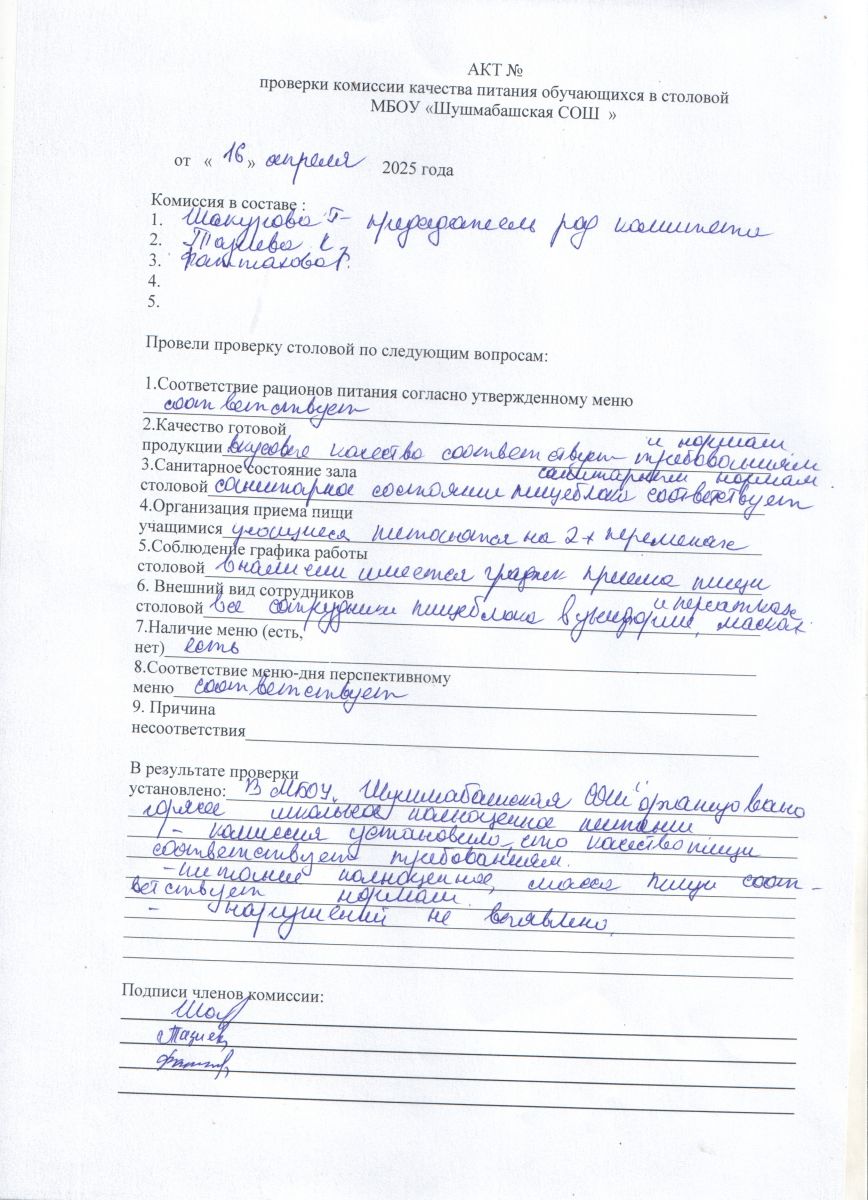 АКТ №
проверки комиссии качества питания обучающихся в столовой
МБОУ «Шушмабашская СОШ »
от « 16 » апреля 2025 года
Комиссия в составе :
1. Шакурова Г- председатель род комитета
2. К.
3. Фаттахова Р.
4.
5.
Провели проверку столовой по следующим вопросам:
1.Соответствие рационов питания согласно утвержденному меню
соответствует
2.Качество готовой
и нормам.
продукции вкусовые качества соответствует требованиям
3.Санитарное состояние зала
санитарным нормам.
столовой санитарное состояние пищеблока соответствует
4.Организация приема пищи
учащимися учащиеся питаются на 2х переменах
5.Соблюдение графика работы
столовой в наличии имеется график приема пищи
6. Внешний вид сотрудников
и перчатках
столовой все сотрудники пищеблока в униформе, масках
7.Наличие меню (есть,
нет) есть
8.Соответствие меню-дня перспективному
меню соответствует
9. Причина
несоответствия
В результате проверки
установлено: В МБОУ "Шушмабашская СОШ" организовано
горячее школьное полноценное питание
- комиссия установила, что качество пищи
соответствует требованиям.
-питание полноценное, масса пищи соот-
ветствует нормам.
- нарушений не выявлено.
Подписи членов комиссии: